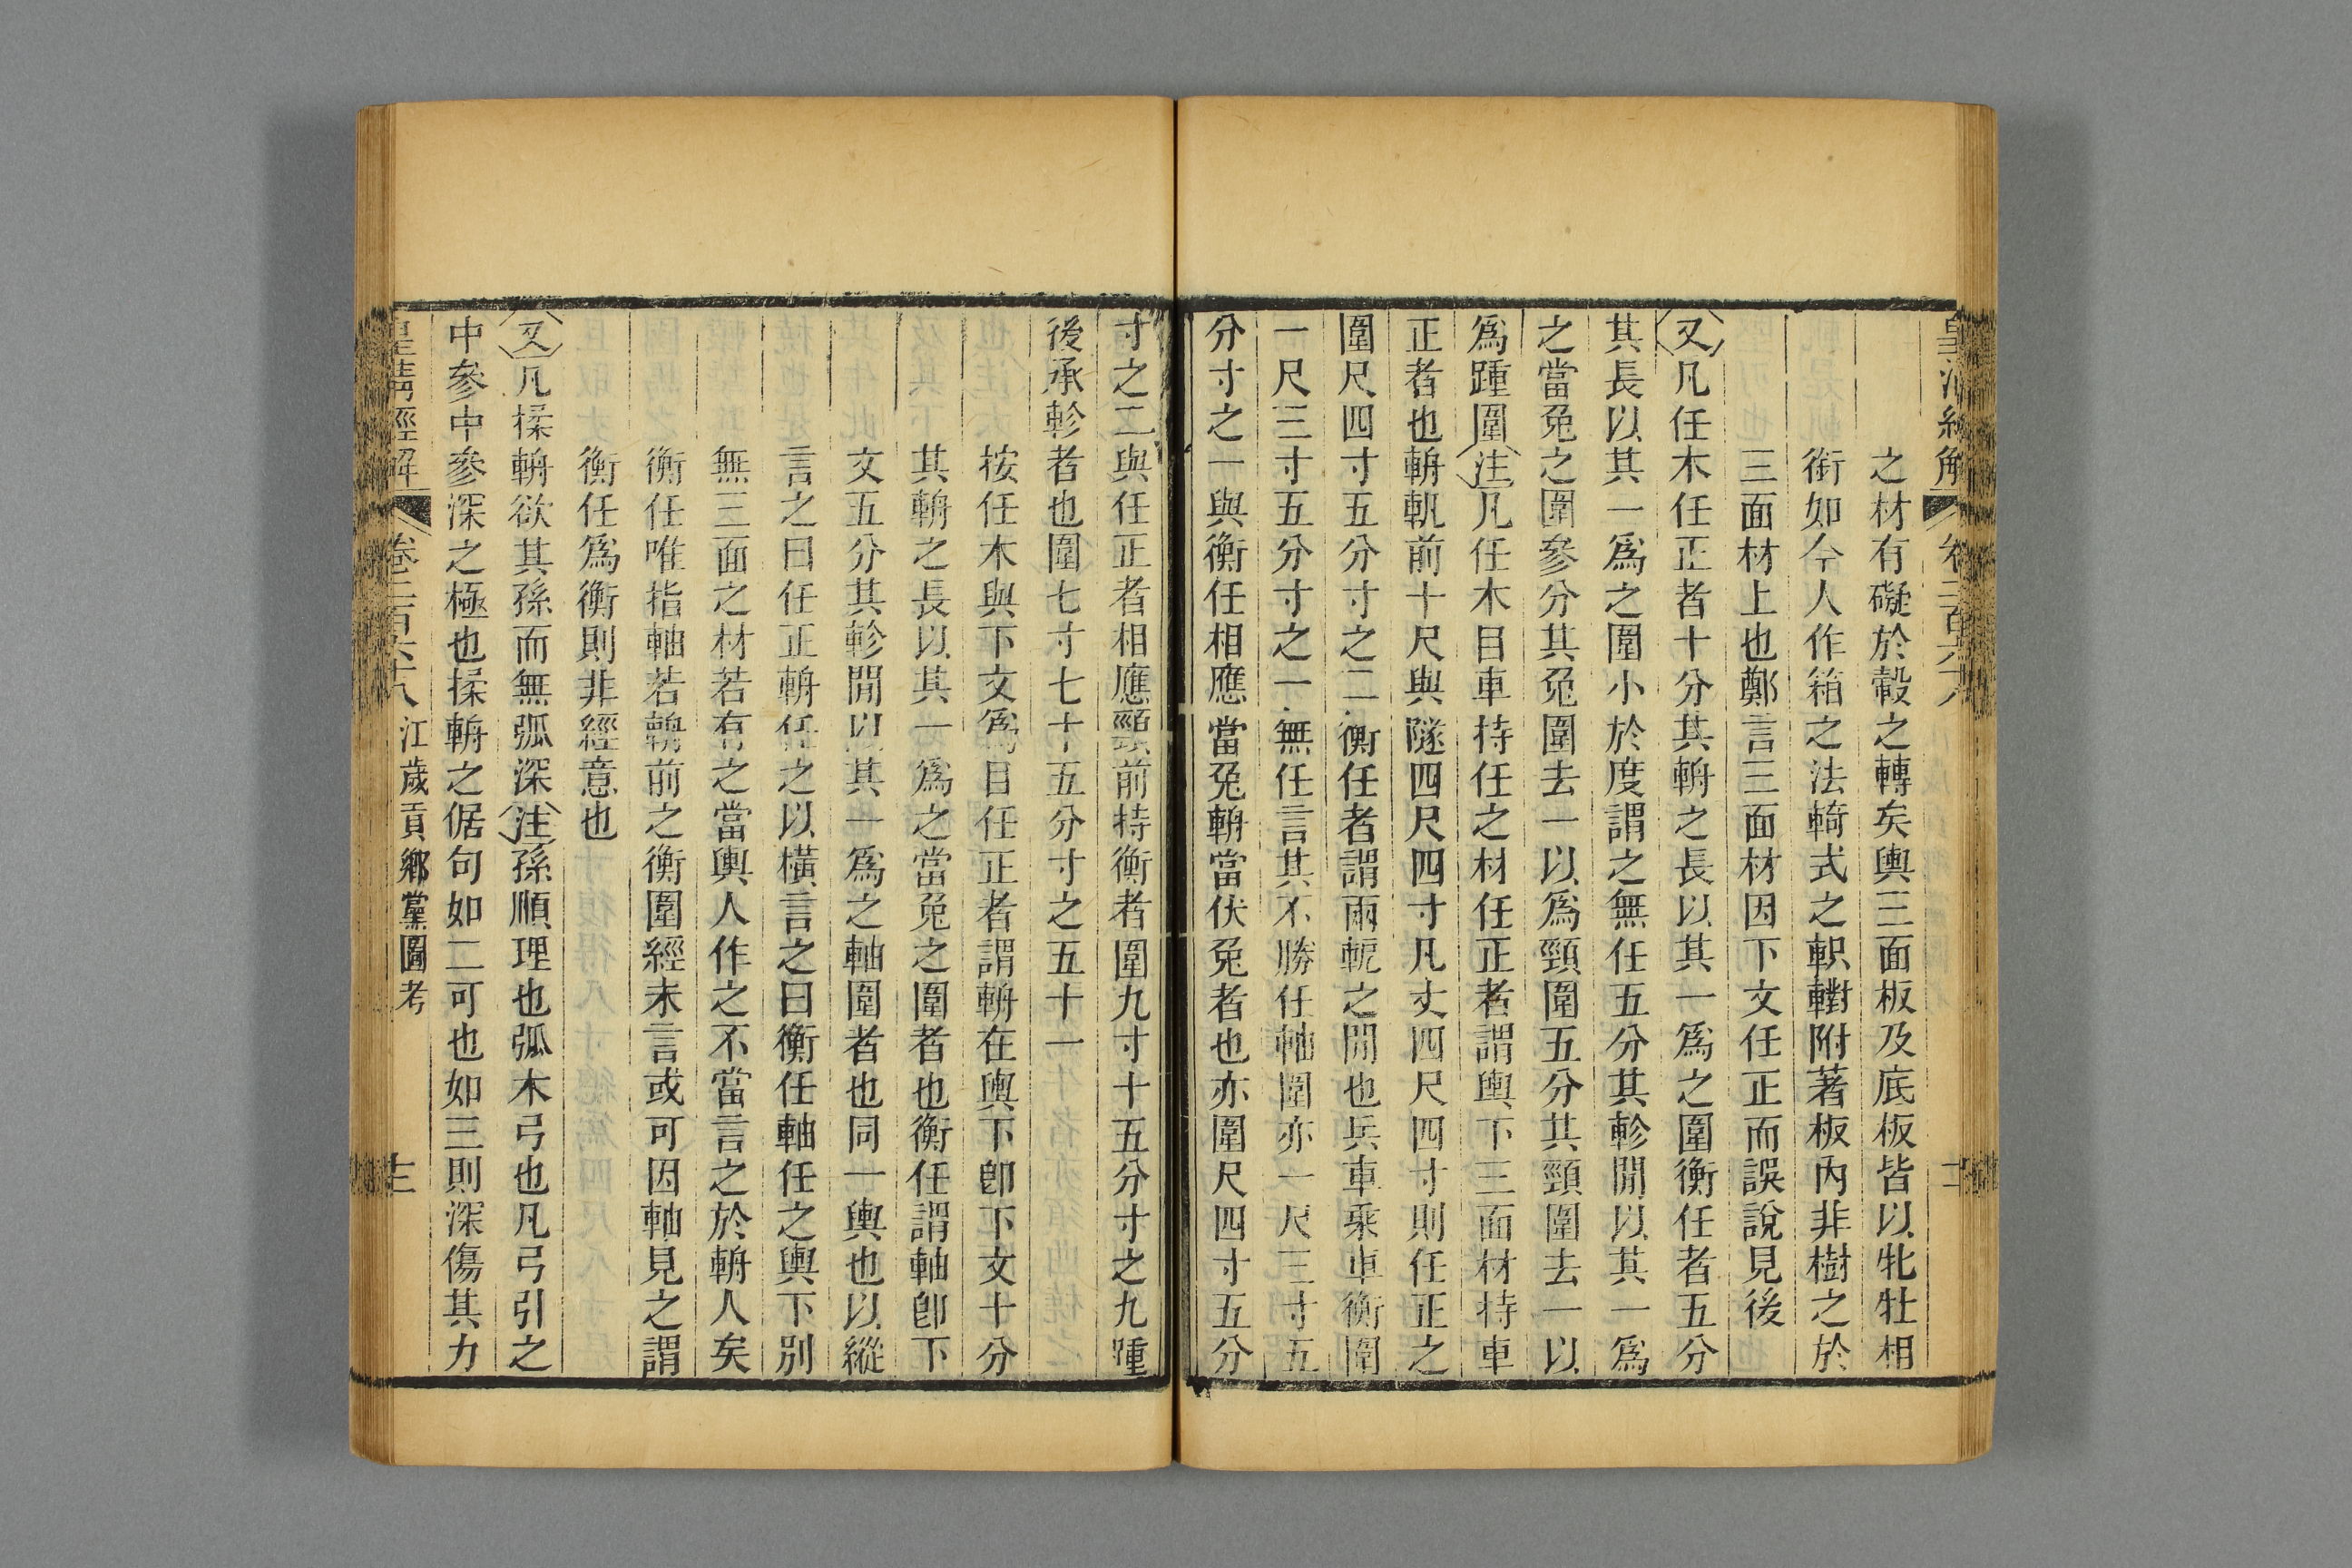 之材有礙於轂之轉矣輿三面板及底板皆以牝牡相
銜如今人作箱之法輢式之軹轛附著板內非樹之於
三面材上也鄭言三面材因下文任正而誤說見後
又凡任木任正者十分其輈之長以其一為之圍衡任者五分
其長以其一為之圍小於度謂之無任五分其軫閒以其一為
之當兔之圍參分其兔圍去一以為頸圍五分其頸圍去一以
為踵圍注凡任木目車持任之材任正者謂輿下三面材持車
正者也輈軓前十尺與隧四尺四寸凡丈四尺四寸則任正之
圍尺四寸五分寸之二衡任者謂兩軛之閒也兵車乘車衡圍
一尺三寸五分寸之一無任言其不勝任軸圍亦一尺三寸五
分寸之一與衡任相應當兔輈當伏兔者也亦圍尺四寸五分
寸之二與任正者相應頸前持衡者圍九寸十五分寸之九踵
後承軫者也圍七寸七十五分寸之五十一
按任木與下文為目任正者謂輈在輿下卽下文十分
其輈之長以其一為之當兔之圍者也衡任謂軸卽下
文五分其軫閒以其一為之軸圍者也同一輿也以縱
言之曰任正輈任之以橫言之曰衡任軸任之輿下別
無三面之材若有之當輿人作之不當言之於輈人矣
衡任唯指軸若輈前之衡圍經未言或可因軸見之謂
衡任為衡則非經意也
又凡揉輈欲其孫而無弧深注孫順理也弧木弓也凡弓引之
中參中參深之極也揉輈之倨句如二可也如三則深傷其力
皇清經解 卷二百六十八 江歲貢鄉黨圖考